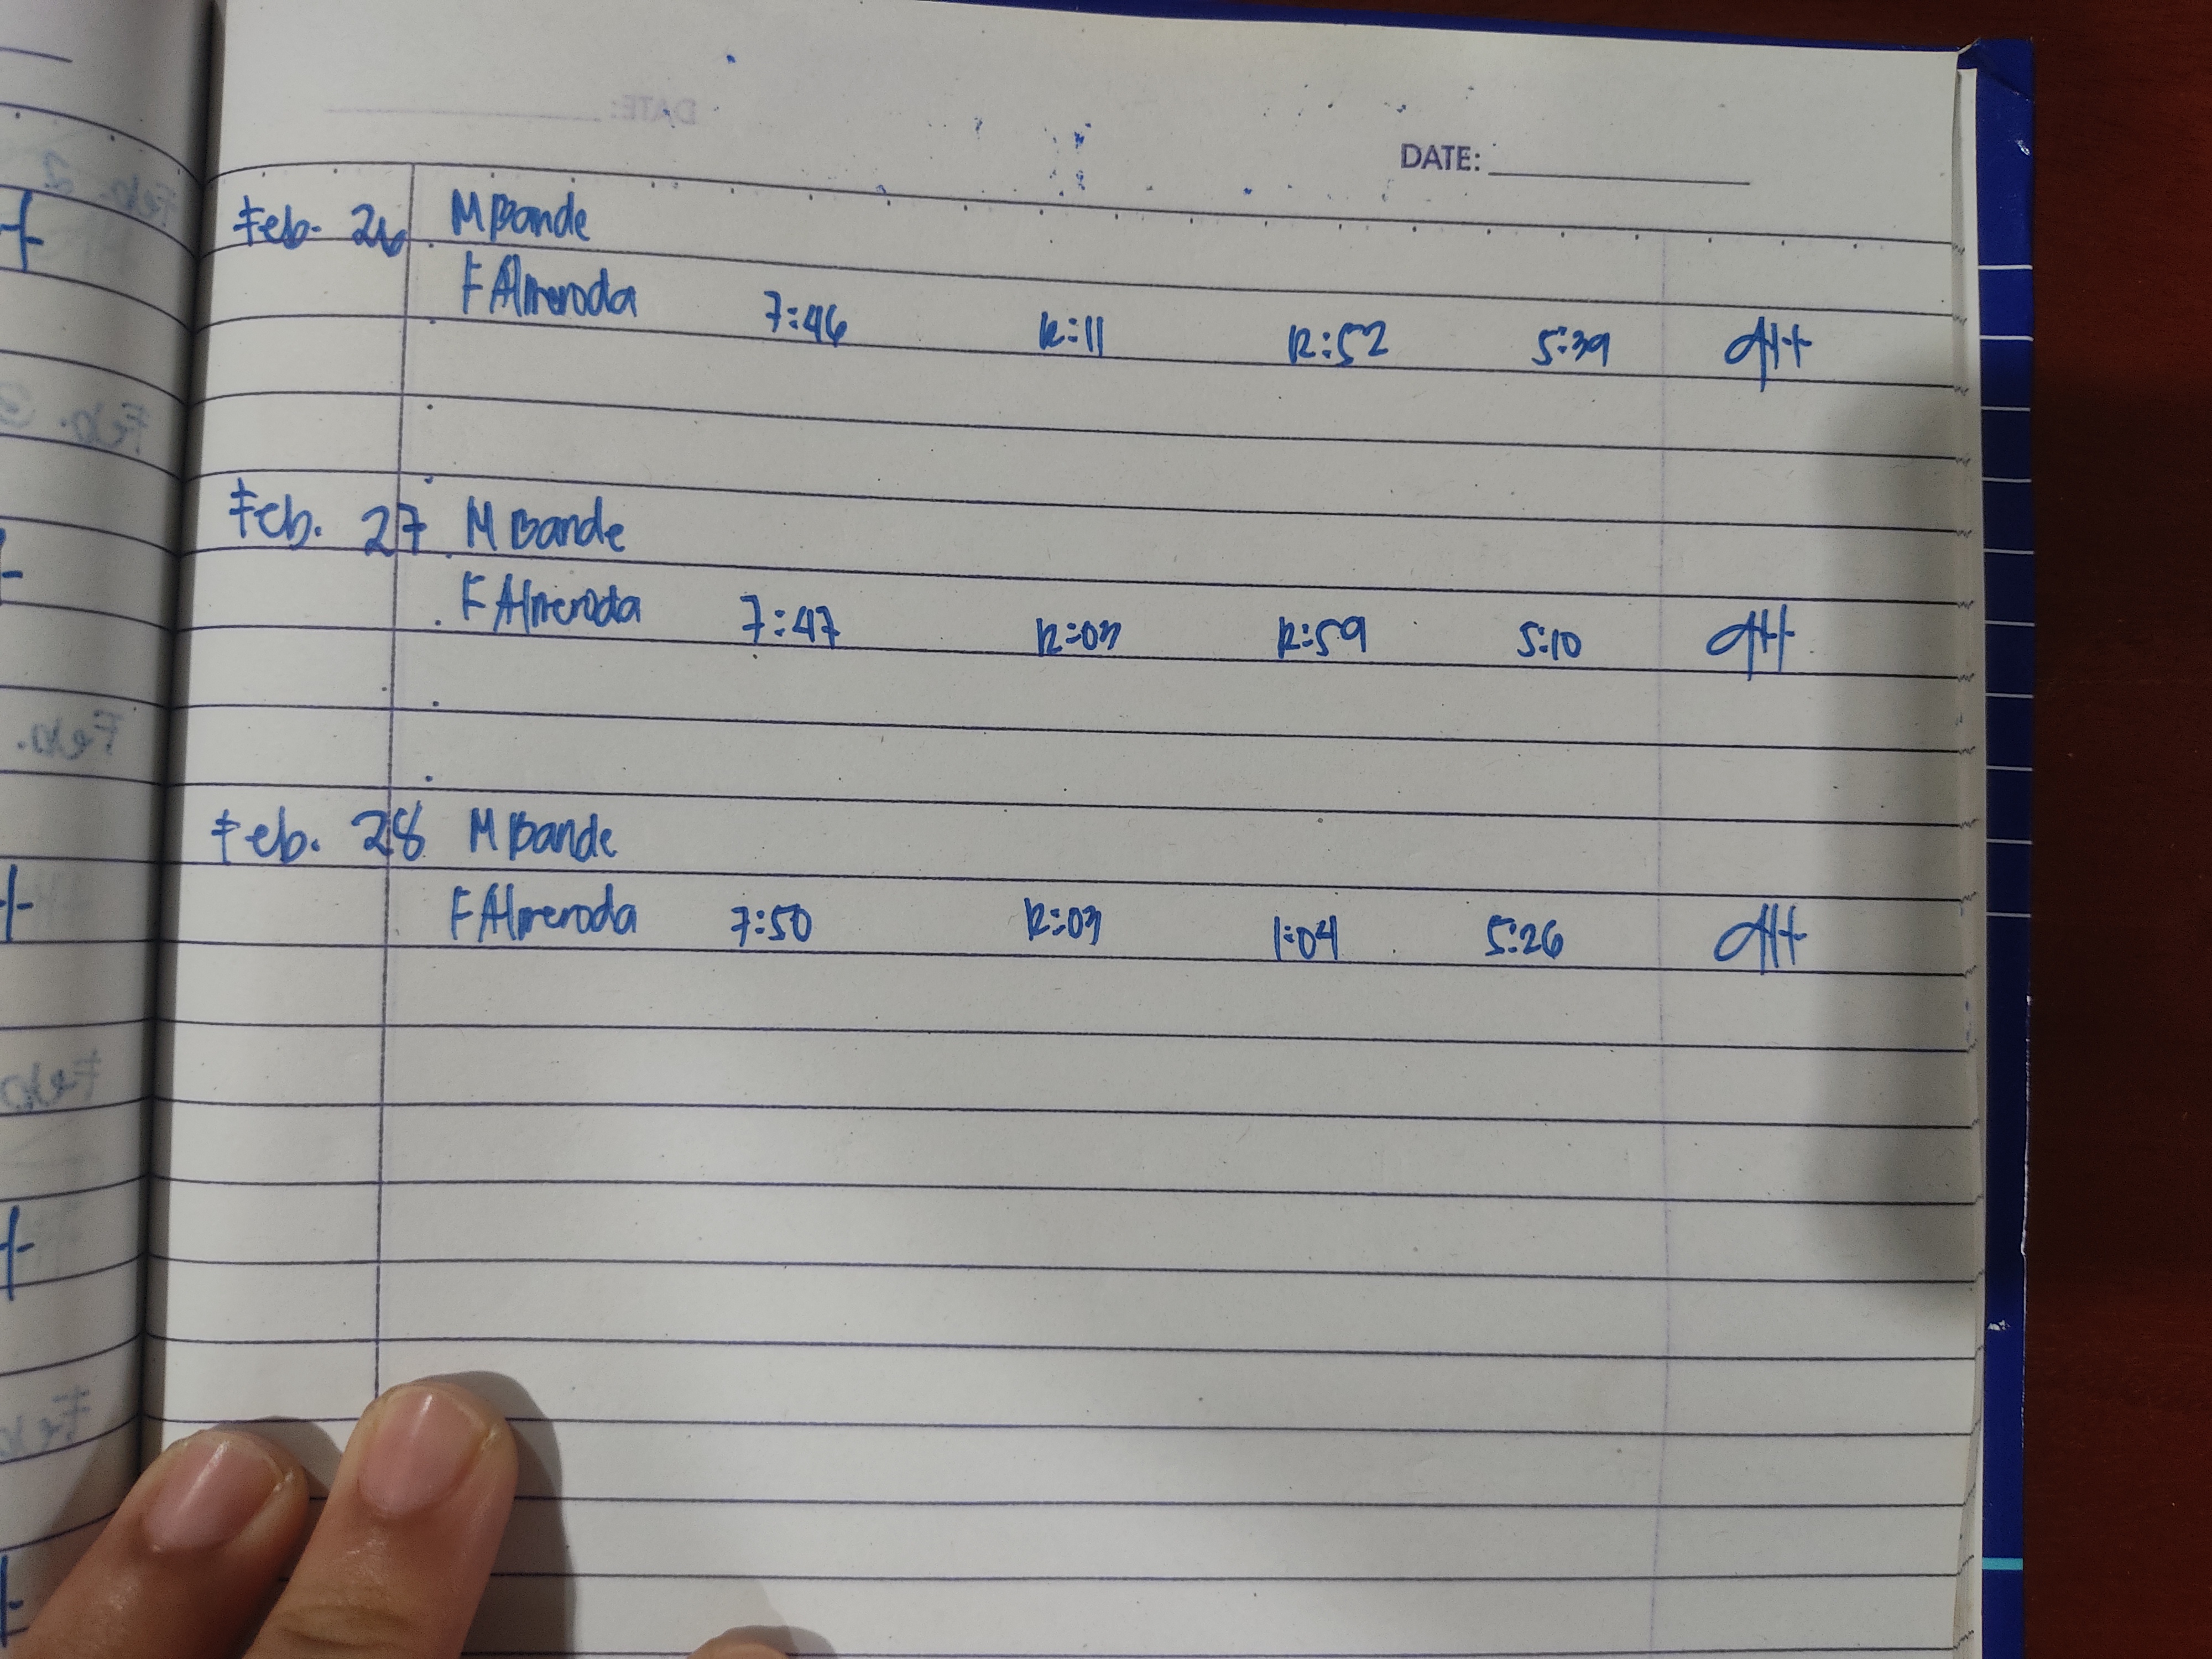 DATE:
Feb. 26 M Bande
F Almeroda 7:46 12:11 12:52 5:39
Feb. 27 M Bande
F Almeroda 7:47 12:03 12:59 5:10
Feb. 28 M Bande
F Almeroda 7:50 12:03 1:04 5:26